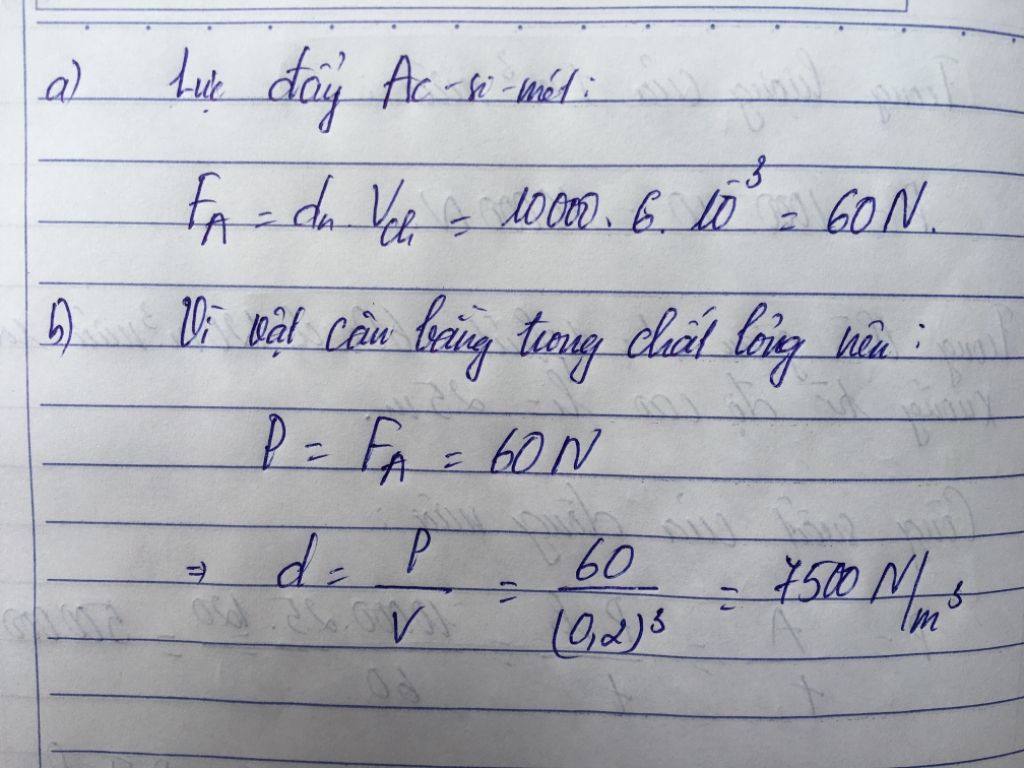 a) Lực đẩy Ac-si-mét:
F_A = d_n. V_ch = 10000. 6. 10^-3 = 60 N.
b) Vì vật cân bằng trong chất lỏng nên:
P = F_A = 60 N
⇒ d = P/V = 60/(0,2)³ = 7500 N/m³